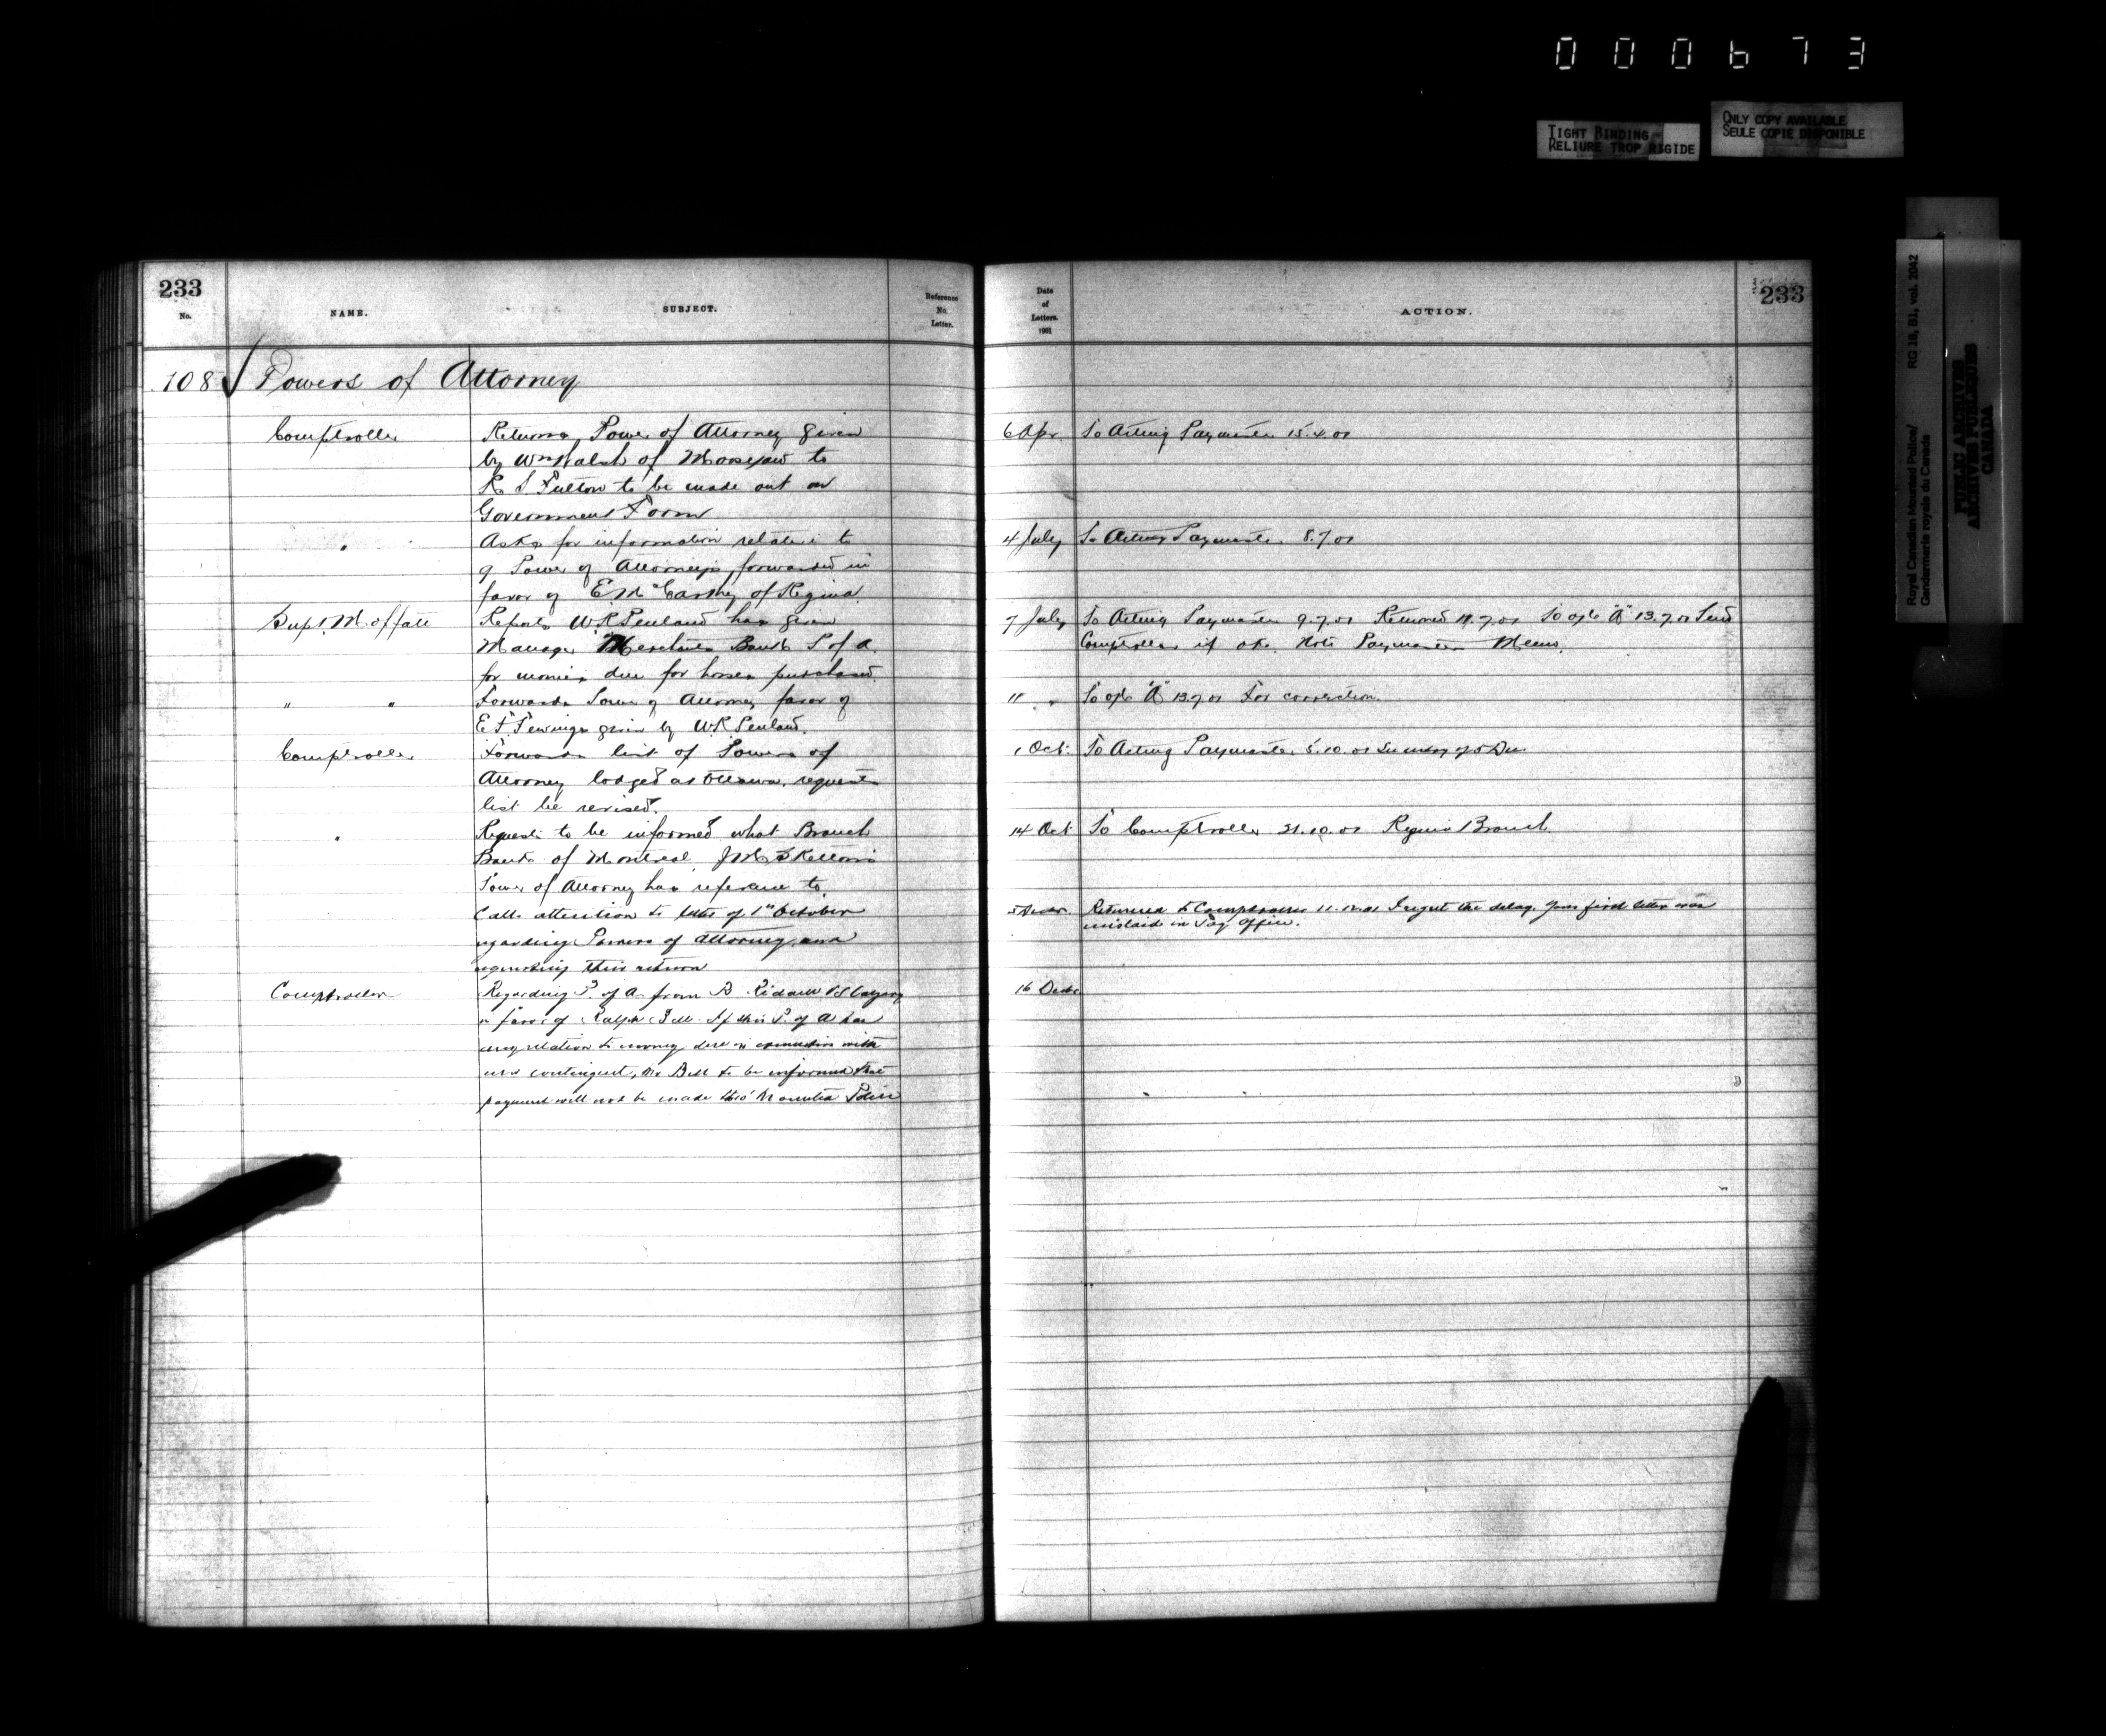 000673
TIGHT BINDING
RELIURE TROP RIGIDE
ONLY COPY AVAILABLE
SEULE COPIE DISPONIBLE
Royal Canadian Mounted Police/ RG 18, B1, vol. 2042
Gendarmerie royale du Canada
PUBLIC ARCHIVES
ARCHIVES PUBLIQUES
CANADA
233
No.
NAME.
SUBJECT.
Reference
No.
Letter.
108 Powers of Attorney
Comptroller
Returns Power of Attorney given
by Wm Walsh of Moosejaw to
R S Fulton to be made out on
Government Form
"
Asks for information relative to
of Power of Attorneys forwarded in
favor of E McCarthy of Regina
Supt. Moffatt
Reports W.R. Penland has given
Manager Merchants Bank P of A.
for monies due for horses purchased.
" "
Forwards Power of Attorney favor of
E F given by W.R Penland.
Comptroller
Forwards list of Powers of
Attorney lodged at Ottawa, requests
list be revised.
"
Requests to be informed what Branch
Bank of Montreal
Power of Attorney has reference to.
Calls attention to letter of 1st October
regarding Powers of Attorney and
requesting their return
Comptroller
Regarding P. of A. from B
in favor of Ralph Bell. If this P. of A has
any relation to money due in connection with
contingent, Mr Bell to be informed that
payment will not be made thro' Mounted Police
Date
of
Letters.
1901
ACTION.
233
6 Apr. To Acting Paymaster 15.4.01
4 July To Acting Paymaster 8.7.01
7 July To Acting Paymaster 9.7.01 Returned 11.7.01 To o/c "A" 13.7.01 Send
Comptroller if o.k. Note Paymasters Memo.
11 " To o/c "A" 13.7.01 For correction.
1 Oct. To Acting Paymaster 5.10.01
14 Oct To Comptroller 21.10.01 Regina Branch
5 Decr. Returned to Comptroller 11.12.01 I regret the delay. Your first letter was
mislaid in Pay Office.
16 Decr